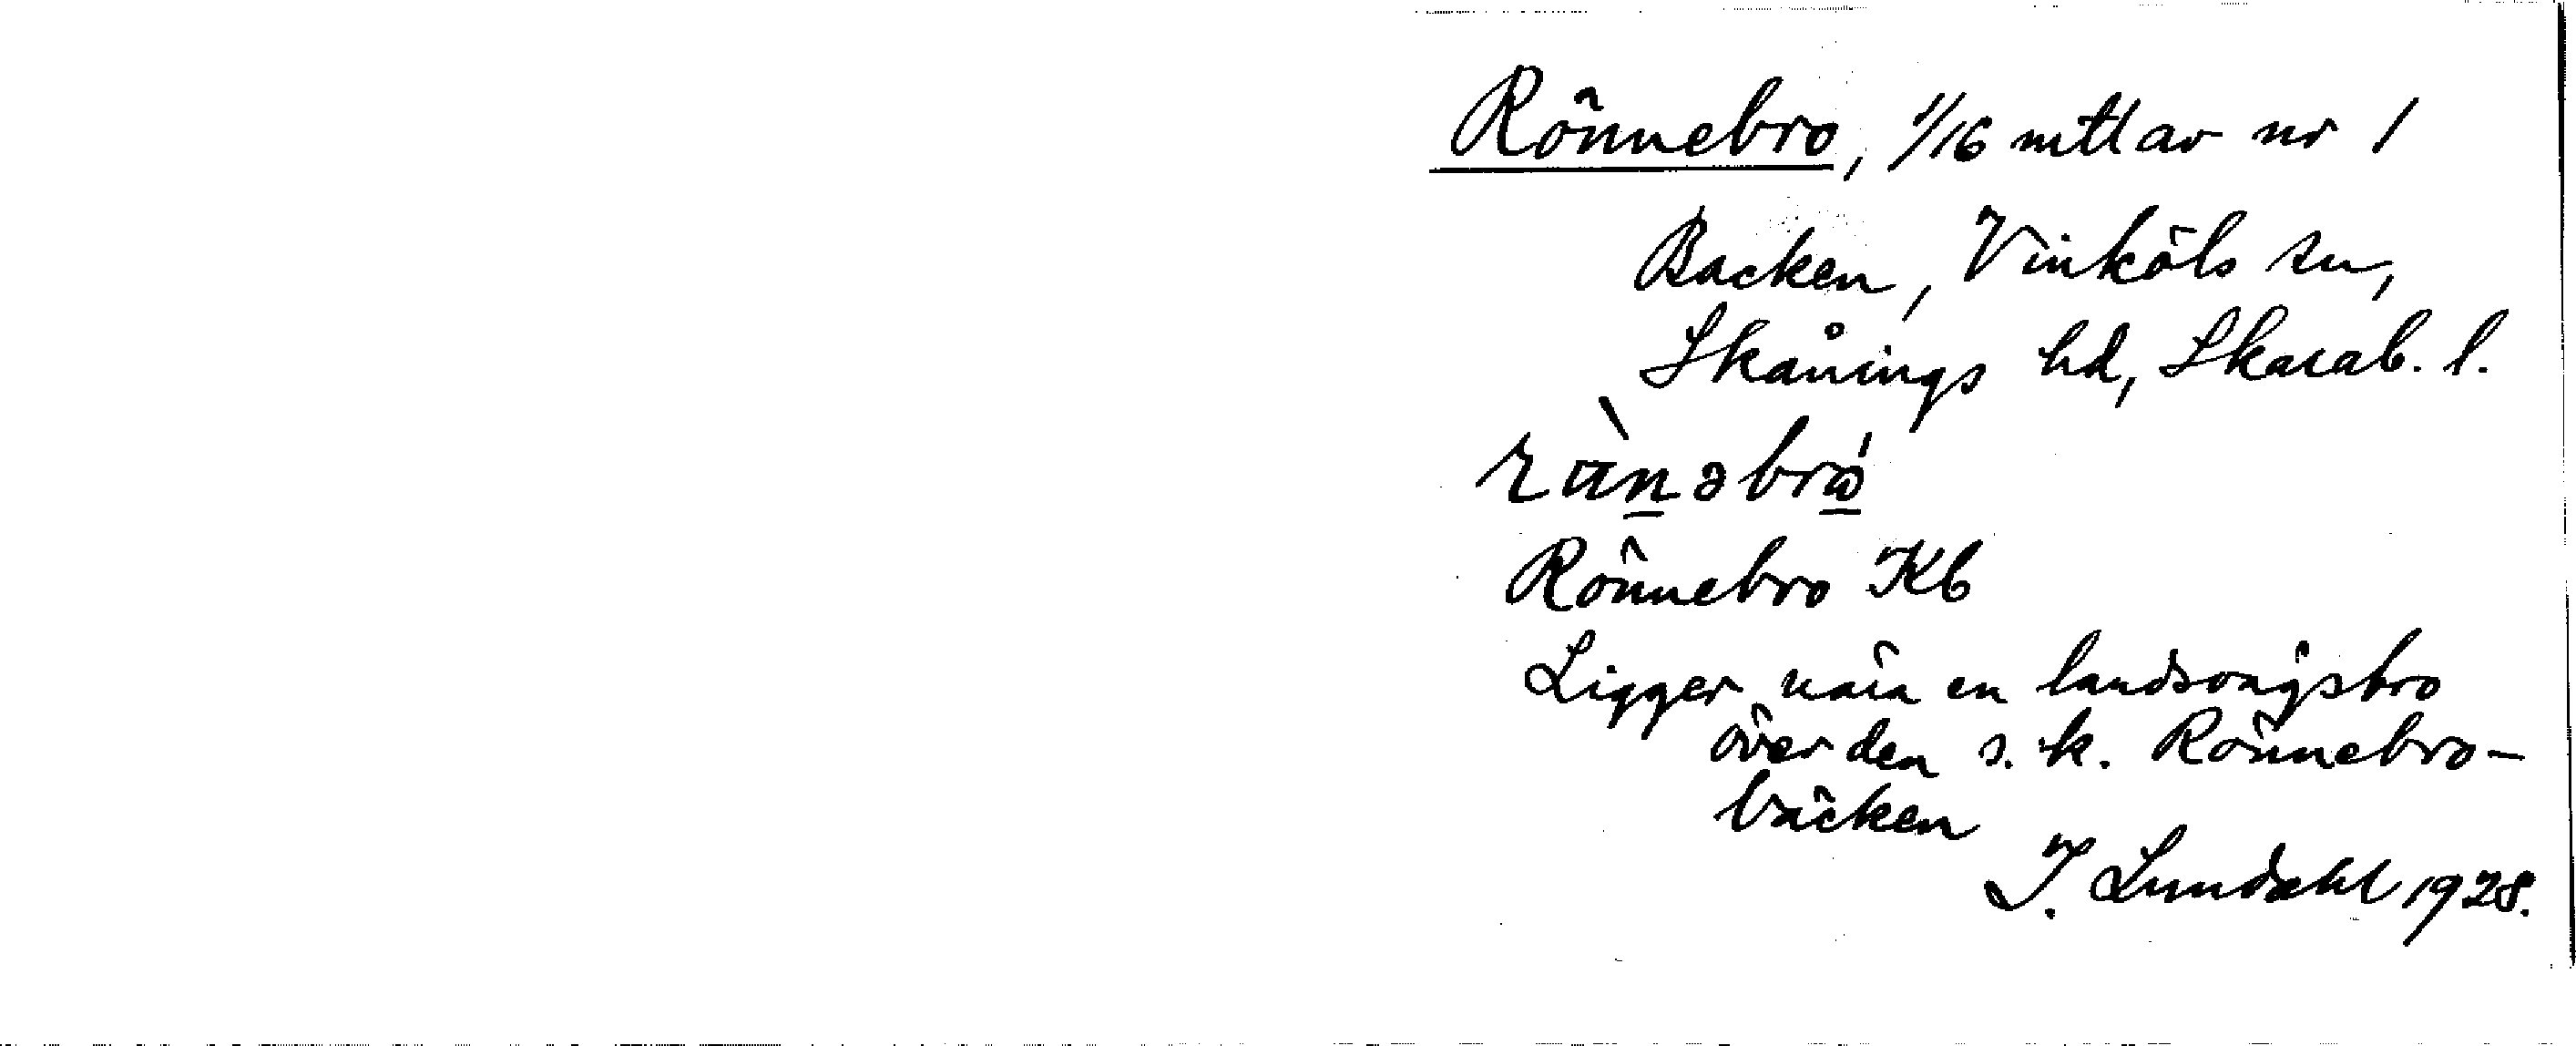 Rönnebro, 1/16 mtl av nr 1
Backen, Vinköls sn,
Skånings hd, Skarab. l.
Rönnebro Kb
Ligger nära en landsvägsbro
över den s.k. Rönnebro-
bäcken
I. Lundahl 1928.